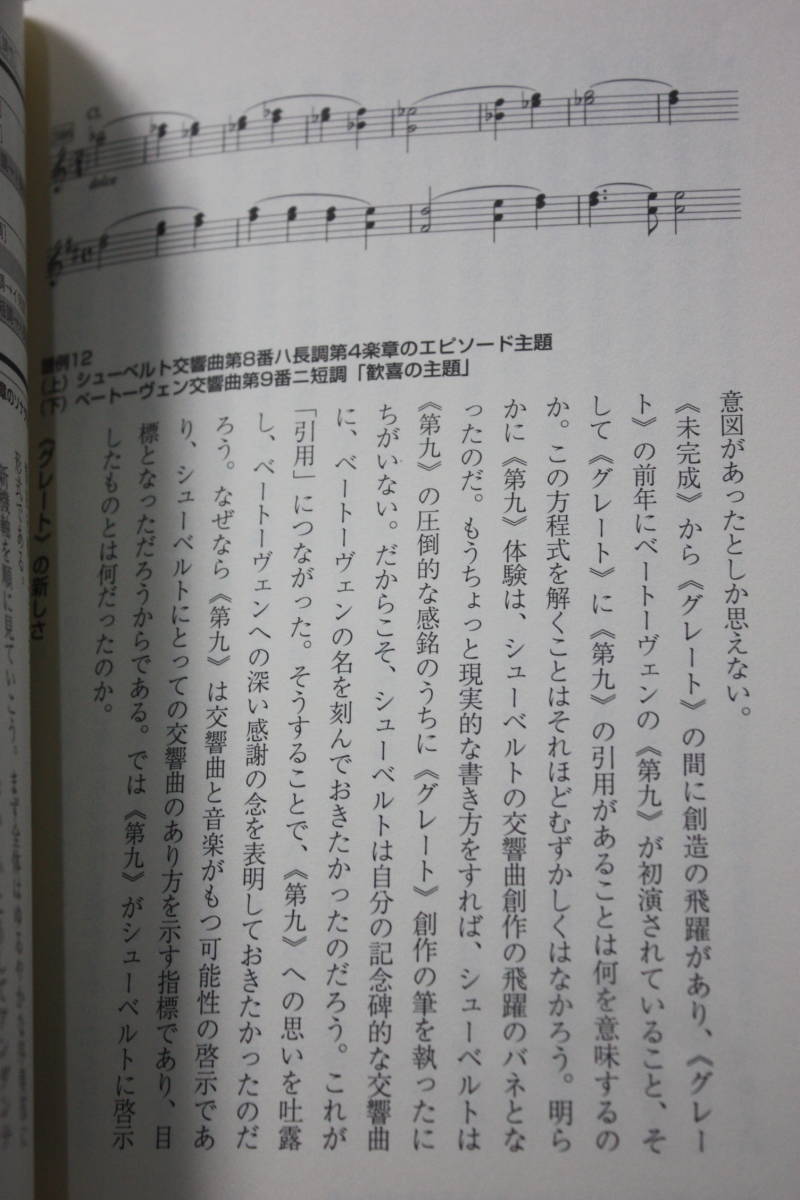 Cl.
dolce
譜例12
(上) シューベルト交響曲第8番ハ長調第4楽章のエピソード主題
(下) ベートーヴェン交響曲第9番ニ短調「歓喜の主題」
意図があったとしか思えない。
《未完成》から《グレート》の間に創造の飛躍があり、《グレー
ト》の前年にベートーヴェンの《第九》が初演されていること、そ
して《グレート》に《第九》の引用があることは何を意味するの
か。この方程式を解くことはそれほどむずかしくはなかろう。明ら
かに《第九》体験は、シューベルトの交響曲創作の飛躍のバネとな
ったのだ。もうちょっと現実的な書き方をすれば、シューベルトは
《第九》の圧倒的な感銘のうちに《グレート》創作の筆を執ったに
ちがいない。だからこそ、シューベルトは自分の記念碑的な交響曲
に、ベートーヴェンの名を刻んでおきたかったのだろう。これが
「引用」につながった。そうすることで、《第九》への思いを吐露
し、ベートーヴェンへの深い感謝の念を表明しておきたかったのだ
ろう。なぜなら《第九》は交響曲と音楽がもつ可能性の啓示であ
り、シューベルトにとっての交響曲のあり方を示す指標であり、目
標となっただろうからである。では《第九》がシューベルトに啓示
したものとは何だったのか。
《グレート》の新しさ